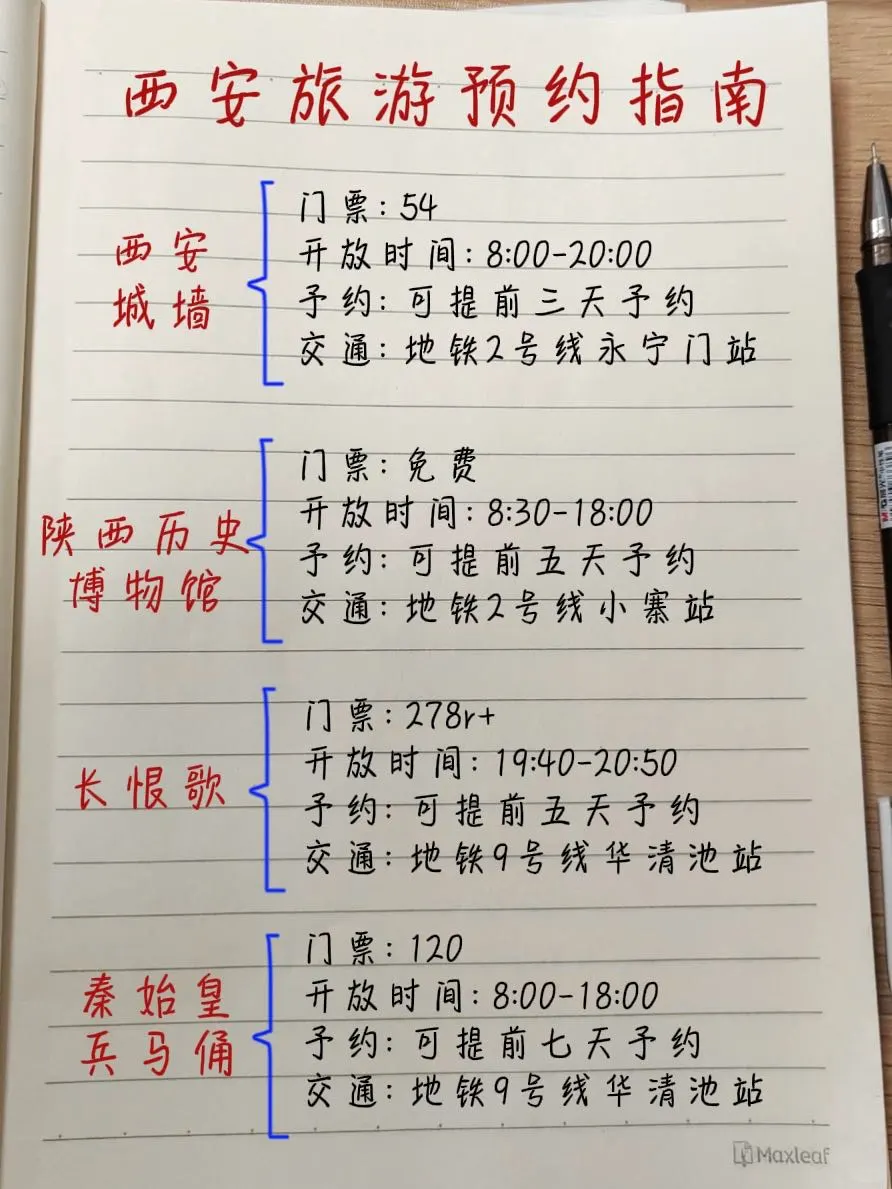 西安旅游预约指南
西安
城墙
门票:54
开放时间:8:00-20:00
予约:可提前三天予约
交通:地铁2号线永宁门站
陕西历史
博物馆
门票:免费
开放时间:8:30-18:00
予约:可提前五天予约
交通:地铁2号线小寨站
长恨歌
门票:278r+
开放时间:19:40-20:50
予约:可提前五天予约
交通:地铁9号线华清池站
秦始皇
兵马俑
门票:120
开放时间:8:00-18:00
予约:可提前七天予约
交通:地铁9号线华清池站
Maxleaf